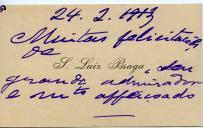 24.2.1913
Muitas felicitações
de
S. Luiz Braga, seu
grande admirador
e mto affeiçoado